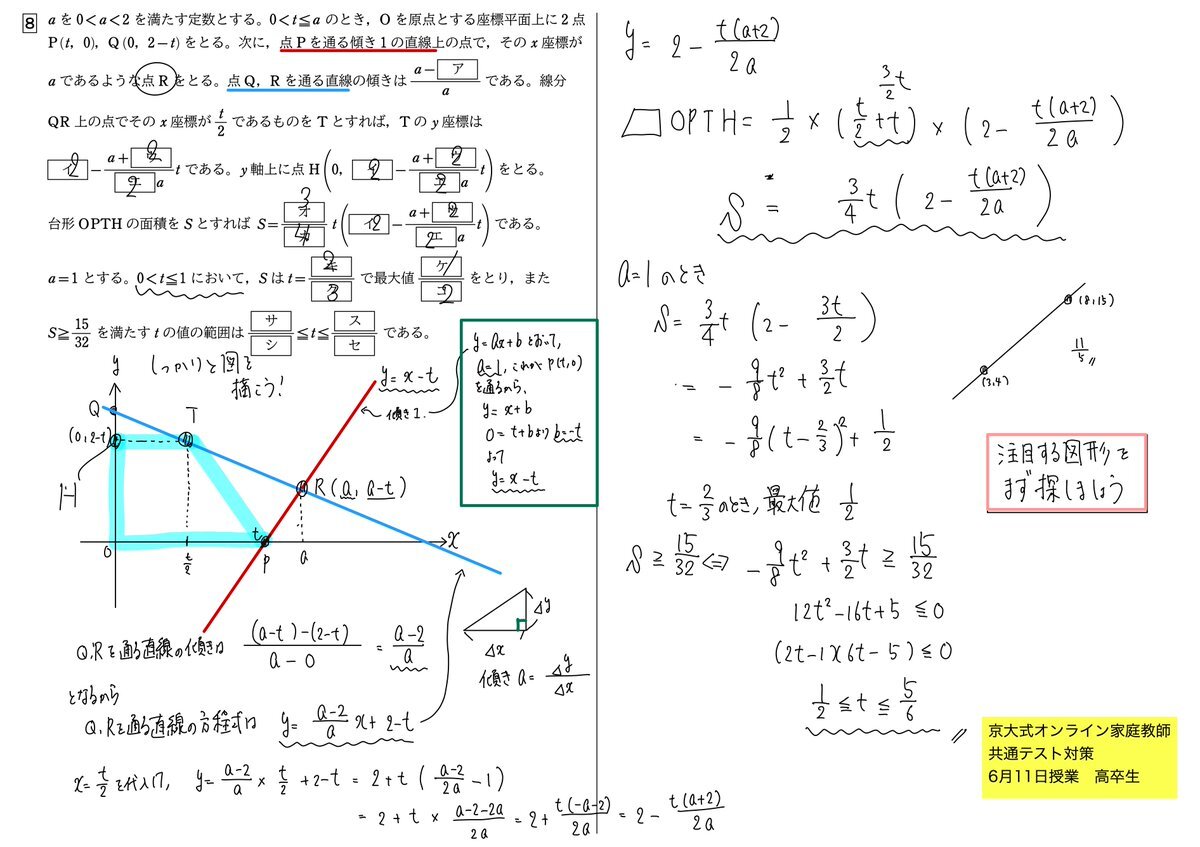 8 aを0<a<2を満たす定数とする。0<t≦aのとき，Oを原点とする座標平面上に2点
P(t, 0)，Q(0, 2−t)をとる。次に，点Pを通る傾き1の直線上の点で，そのx座標が
aであるような点Rをとる。点Q，Rを通る直線の傾きは (a−ア)/a である。線分
QR上の点でそのx座標が t/2 であるものをTとすれば，Tのy座標は
2 − (a+2)/(2a) t である。y軸上に点H(0, 2 − (a+2)/(2a) t)をとる。
台形OPTHの面積をSとすれば S= 3/4 t(2 − (a+2)/(2a) t)である。
a=1とする。0<t≦1において，Sはt= 2/3 で最大値 1/2 をとり，また
S≧ 15/32 を満たすtの値の範囲は サ/シ ≦t≦ ス/セ である。
しっかりと図を
描こう!
y
Q
T
(0, 2-t)
H
O
t/2
t
P
a
x
R(a, a-t)
y=x-t
傾き1.
y=ax+bとおいて,
a=1, これがP(t,0)
を通るから,
y=x+b
0=t+bよりb=-t
よって
y=x-t
Δy
Δx
傾きa= Δy/Δx
Q,Rを通る直線の傾きは ((a-t)-(2-t))/(a-0) = (a-2)/a
となるから
Q,Rを通る直線の方程式は y= (a-2)/a x+2-t
x= t/2 を代入し, y= (a-2)/a × t/2 +2-t = 2+t((a-2)/2a -1)
= 2+t× (a-2-2a)/2a = 2+ t(-a-2)/2a = 2- t(a+2)/2a
y= 2- t(a+2)/2a
3/2 t
OPTH= 1/2 × (t/2+t) × (2- t(a+2)/2a)
S = 3/4 t (2- t(a+2)/2a)
a=1のとき
S= 3/4 t (2- 3t/2)
= - 9/8 t² + 3/2 t
= - 9/8 (t- 2/3)² + 1/2
t= 2/3 のとき, 最大値 1/2
S ≧ 15/32 ⇔ - 9/8 t² + 3/2 t ≧ 15/32
12t²-16t+5 ≦0
(2t-1)(6t-5) ≦0
1/2 ≦ t ≦ 5/6
(8,15)
(3,4)
11/5
注目する図形を
まず探しましょう
京大式オンライン家庭教師
共通テスト対策
6月11日授業　高卒生